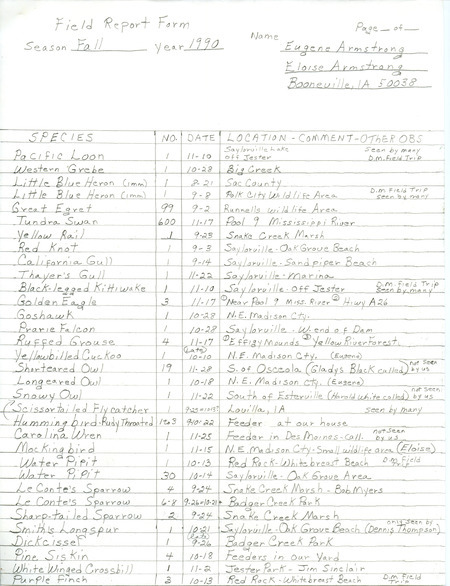 Field Report Form
Page _ of _
Season Fall year 1990
Name Eugene Armstrong
Eloise Armstrong
Booneville, IA 50038
SPECIES NO. DATE LOCATION - COMMENT - OTHER OBS
Pacific Loon 1 11-10 Saylorville Lake off Jester seen by many D.m. Field Trip
Western Grebe 1 10-28 Big Creek
Little Blue Heron (1mm) 1 8-21 Sac County
Little Blue Heron (1mm) 1 9-8 Polk City Wildlife Area D.m. Field Trip seen by many
Great Egret 99 9-2 Runnells wildlife Area
Tundra Swan 600 11-17 Pool 9 Mississippi River
Yellow Rail 1 9-23 Snake Creek Marsh
Red Knot 1 9-3 Saylorville - Oak Grove Beach
California Gull 1 9-14 Saylorville - Sandpiper Beach
Thayer's Gull 1 11-22 Saylorville - Marina
Black-legged Kittiwake 1 11-10 Saylorville - Off Jester D.m. Field Trip seen by many
Golden Eagle 3 11-17 ① Near Pool 9 Miss. River ② Hiwy A26
Goshawk 1 10-28 N.E. Madison Cty.
Prarie Falcon 1 10-28 Saylorville - W. end of Dam
Ruffed Grouse 4 11-17 ① Effigy Mounds ③ Yellow River Forest.
Yellowbilled Cuckoo 1 (Late) 10-10 N.E. Madison Cty. (Eugene)
Shorteared Owl 19 11-28 S. of Osceola (Gladys Black called) not seen by us
Longeared Owl 1 10-18 N.E. Madison Cty. (Eugene)
Snowy Owl 1 11-22 South of Esterville (Harold White called) not seen by us
Scissortailed Flycatcher 1 Lovilla, IA seen by many
Hummingbird - Ruby Throated 9-10-22 Feeder at our house
Carolina Wren 1 11-25 Feeder in Des Moines - call. not seen by us
Mockingbird 1 11-15 N.E. Madison Cty - Small wildlife area (Eloise)
Water Pipit 1 10-13 Red Rock - Whitebreast Beach D.m. Field Trip
Water Pipit 30 10-14 Saylorville - Oak Grove Area
Le Conte's Sparrow 4 9-24 Snake Creek Marsh - Bob Myers
Le Conte's Sparrow 6-8 9-26-10-21 Badger Creek Park
Sharp-tailed Sparrow 2 9-24 Snake Creek Marsh
Smith's Longspur 1 10-21 Saylorville Oak Grove Beach (Dennis Thompson) only seen by
Dickcissel 1 (Late) 9-26 Badger Creek Park
Pine Siskin 4 10-18 Feeders in our Yard
White Winged Crossbill 1 11-2 Jester Park - Jim Sinclair
Purple Finch 2 10-13 Red Rock - Whitebreast Beach D.m. Field Trip